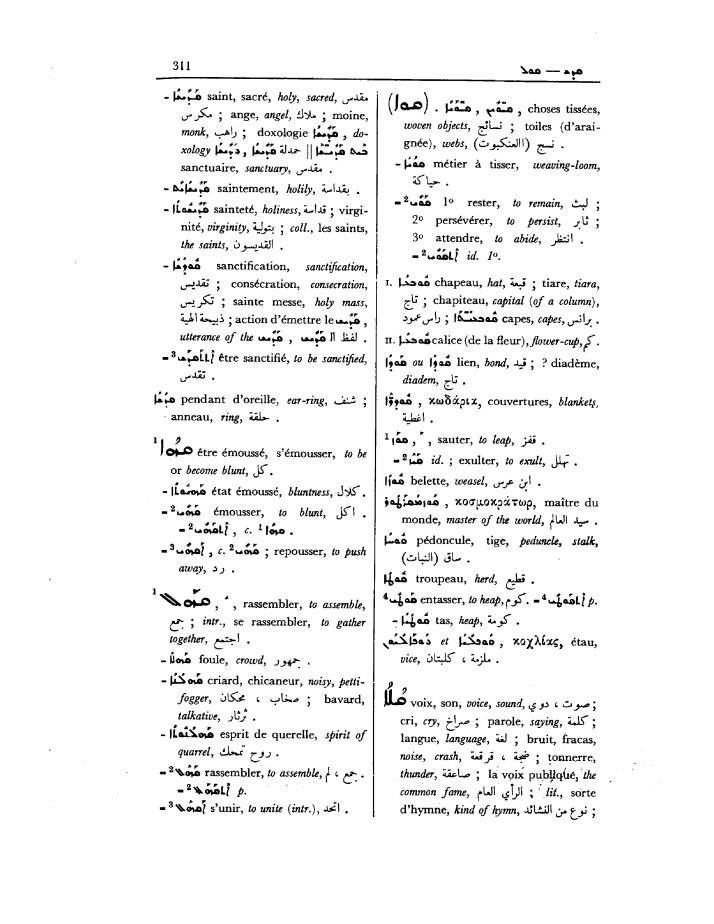 311
- ܩܕܝܫܐ saint, sacré, holy, sacred, مقدس
مكرس ; ange, angel, ملاك ; moine,
monk, راهب ; doxologie ܩܕܝܫܐ , do-
xology حمدلة
sanctuaire, sanctuary, مقدس .
- ܩܕܝܫܐܝܬ saintement, holily, بقداسة .
- ܩܕܝܫܘܬܐ sainteté, holiness, قداسة ; virgi-
nité, virginity, بتولية ; coll., les saints,
the saints, القديسون .
- ܩܘܕܫܐ sanctification, sanctification,
تقديس ; consécration, consecration,
تكريس ; sainte messe, holy mass,
ذبيحة الهية ; action d'émettre le ܩܕܝܫ ,
utterance of the ܩܕܝܫ , لفظ الـ ܩܕܝܫܐ .
- 3 ܐܬܩܕܫ être sanctifié, to be sanctified,
تقدس .
ܩܕܫܐ pendant d'oreille, ear-ring, شنف ;
anneau, ring, حلقة .
1 ܩܗܐ être émoussé, s'émousser, to be
or become blunt, كل .
- état émoussé, bluntness, كلال .
- 2 émousser, to blunt, اكل .
- 2 , c. 1 .
- 3 , c. 2 ; repousser, to push
away, رد .
1 ܩܗܠ , rassembler, to assemble,
جمع ; intr., se rassembler, to gather
together, اجتمع .
- ܩܗܠܐ foule, crowd, جمهور .
- criard, chicaneur, noisy, petti-
fogger, صخاب ، محكان ; bavard,
talkative, ثرثار .
- esprit de querelle, spirit of
quarrel, روح تمحك .
- 2 ܩܗܠ rassembler, to assemble, جمع ، لم .
- 2 p.
- 3 s'unir, to unite (intr.), اتحد .
(ܩܘܐ) . , choses tissées,
woven objects, نسائج ; toiles (d'arai-
gnée), webs, نسج (العنكبوت) .
- métier à tisser, weaving-loom,
حياكة .
- 2 ܩܘܝ 1º rester, to remain, لبث ;
2º persévérer, to persist, ثابر ;
3º attendre, to abide, انتظر .
- 2 id. 1º.
I. ܩܘܒܥܐ chapeau, hat, قبعة ; tiare, tiara,
تاج ; chapiteau, capital (of a column),
راس عمود ; capes, capes, برانس .
II. ܩܘܒܥܐ calice (de la fleur), flower-cup, كم .
ou lien, bond, قيد ; ? diadème,
diadem, تاج .
, κωδάρια, couvertures, blankets,
اغطية .
1 , sauter, to leap, قفز .
- 2 id. ; exulter, to exult, تهلل .
ܩܘܙܐ belette, weasel, ابن عرس .
, κοσμοκράτωρ, maître du
monde, master of the world, سيد العالم .
pédoncule, tige, peduncle, stalk,
ساق (النبات) .
troupeau, herd, قطيع .
4 entasser, to heap, كوم . - 4 p.
- tas, heap, كومة .
et , κοχλίας, étau,
vice, ملزمة ، كلبتان .
ܩܠܐ voix, son, voice, sound, صوت ، دوي ;
cri, cry, صراخ ; parole, saying, كلمة ;
langue, language, لغة ; bruit, fracas,
noise, crash, ضجة ، قرقعة ; tonnerre,
thunder, صاعقة ; la voix publique, the
common fame, الرأي العام ; lit., sorte
d'hymne, kind of hymn, نوع من النشائد ;